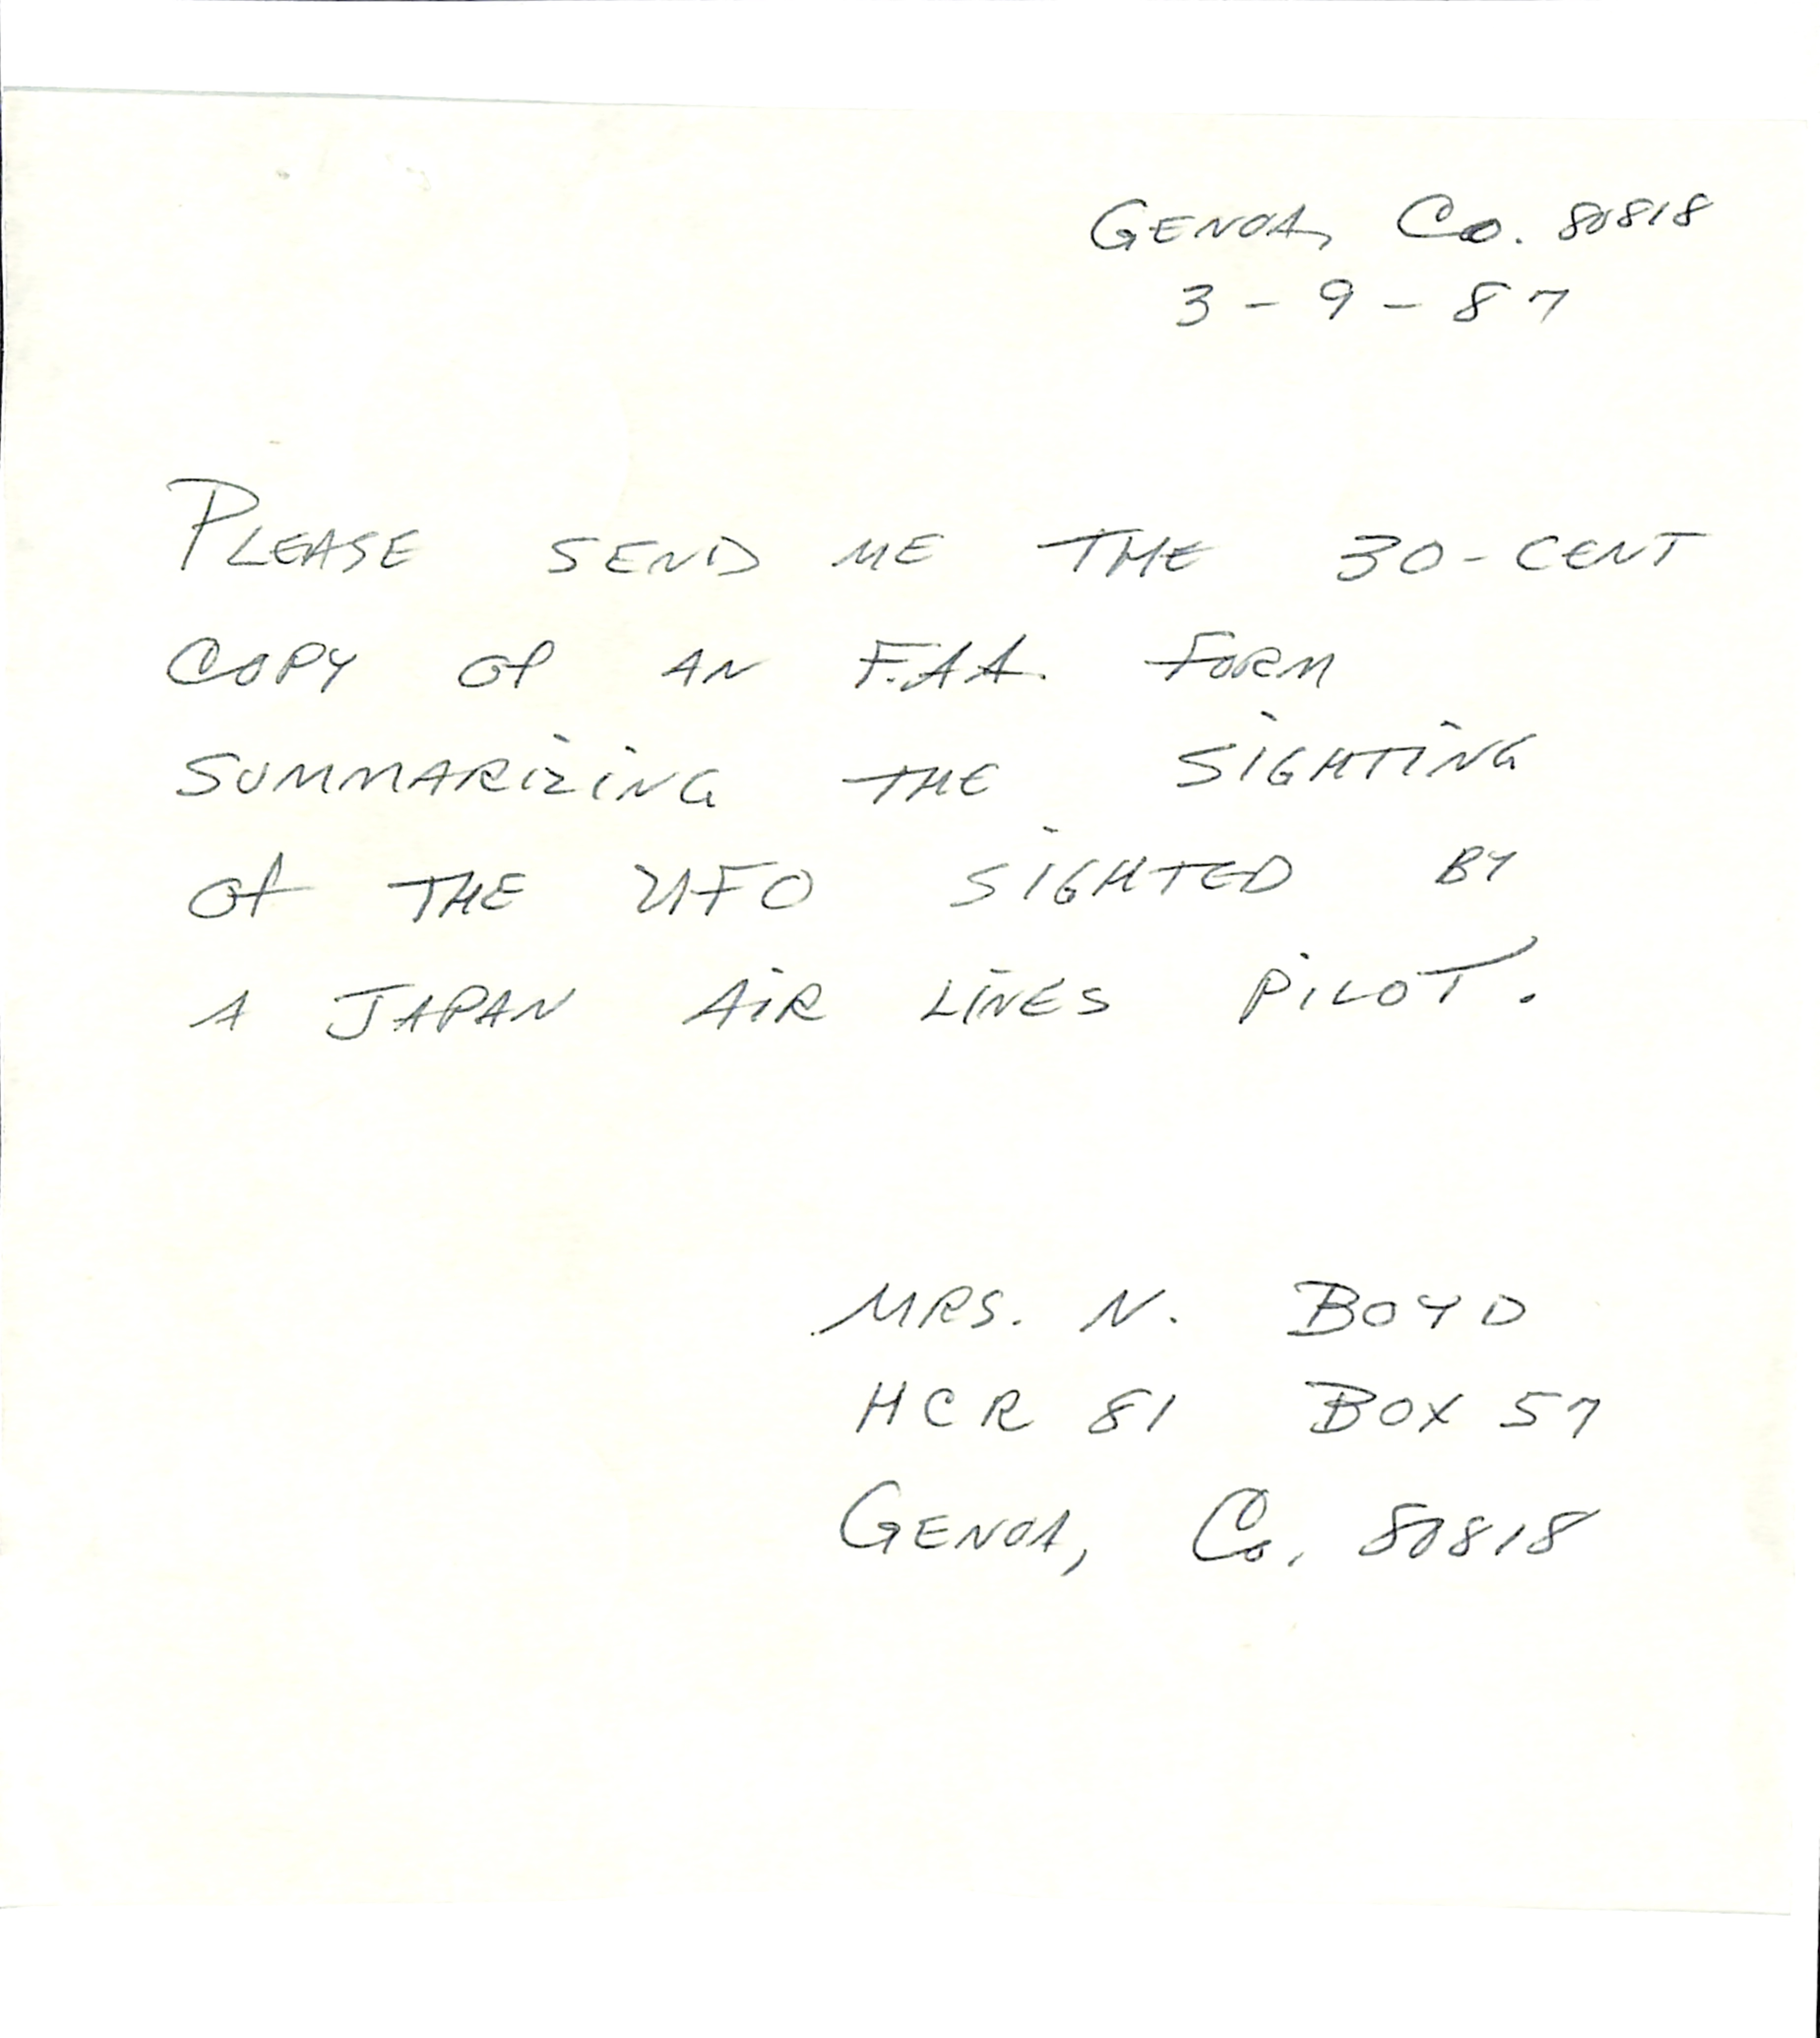 GENOA, Co. 80818
3 - 9 - 87
PLEASE SEND ME THE 30-CENT
COPY of AN F.A.A. FORM
SUMMARIZING THE SIGHTING
of THE UFO SIGHTED BY
A JAPAN AIR LINES PILOT.
MRS. N. BOYD
HCR 81 BOX 57
GENOA, Co. 80818